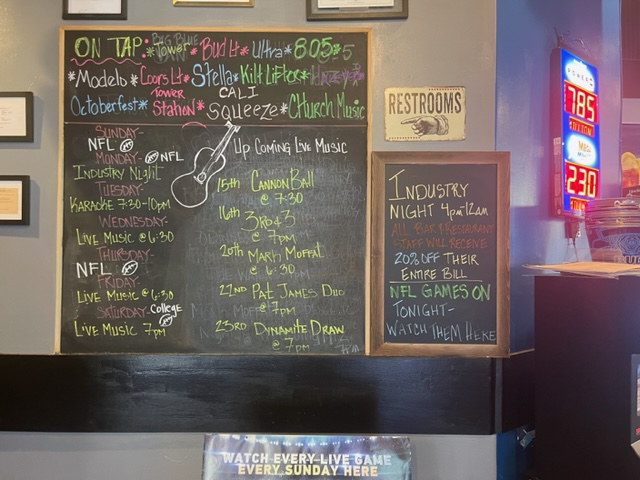 ON TAP * BIG BLUE VAN * Bud Lt * Ultra * 805 * 5
Tower
* Modelo * Coors Lt * Stella * Kilt Lifter *
Octoberfest * Tower Station * CALI SQUEEZE * Church Music
SUNDAY-
NFL
MONDAY- NFL
INDUSTRY NIGHT
TUESDAY-
KARAOKE 7:30-10pm
WEDNESDAY-
LIVE MUSIC @ 6:30
THURSDAY-
NFL
FRIDAY-
LIVE MUSIC @ 6:30
SATURDAY- College
LIVE MUSIC 7pm
UP COMING LIVE MUSIC
15th CANNON BALL
@ 7:30
16th 3RD & 3
@ 7pm
20th MARK MOFFAT
@ 6:30
22nd PAT JAMES DUO
@ 7pm
23RD DYNAMITE DRAW
@ 7pm
RESTROOMS
INDUSTRY
NIGHT 4pm-12AM
ALL BAR & RESTAURANT
STAFF WILL RECEIVE
20% OFF THEIR
ENTIRE BILL
NFL GAMES ON
TONIGHT-
WATCH THEM HERE
POWER
785
MILLION
MEGA
230
WATCH EVERY LIVE GAME
EVERY SUNDAY HERE